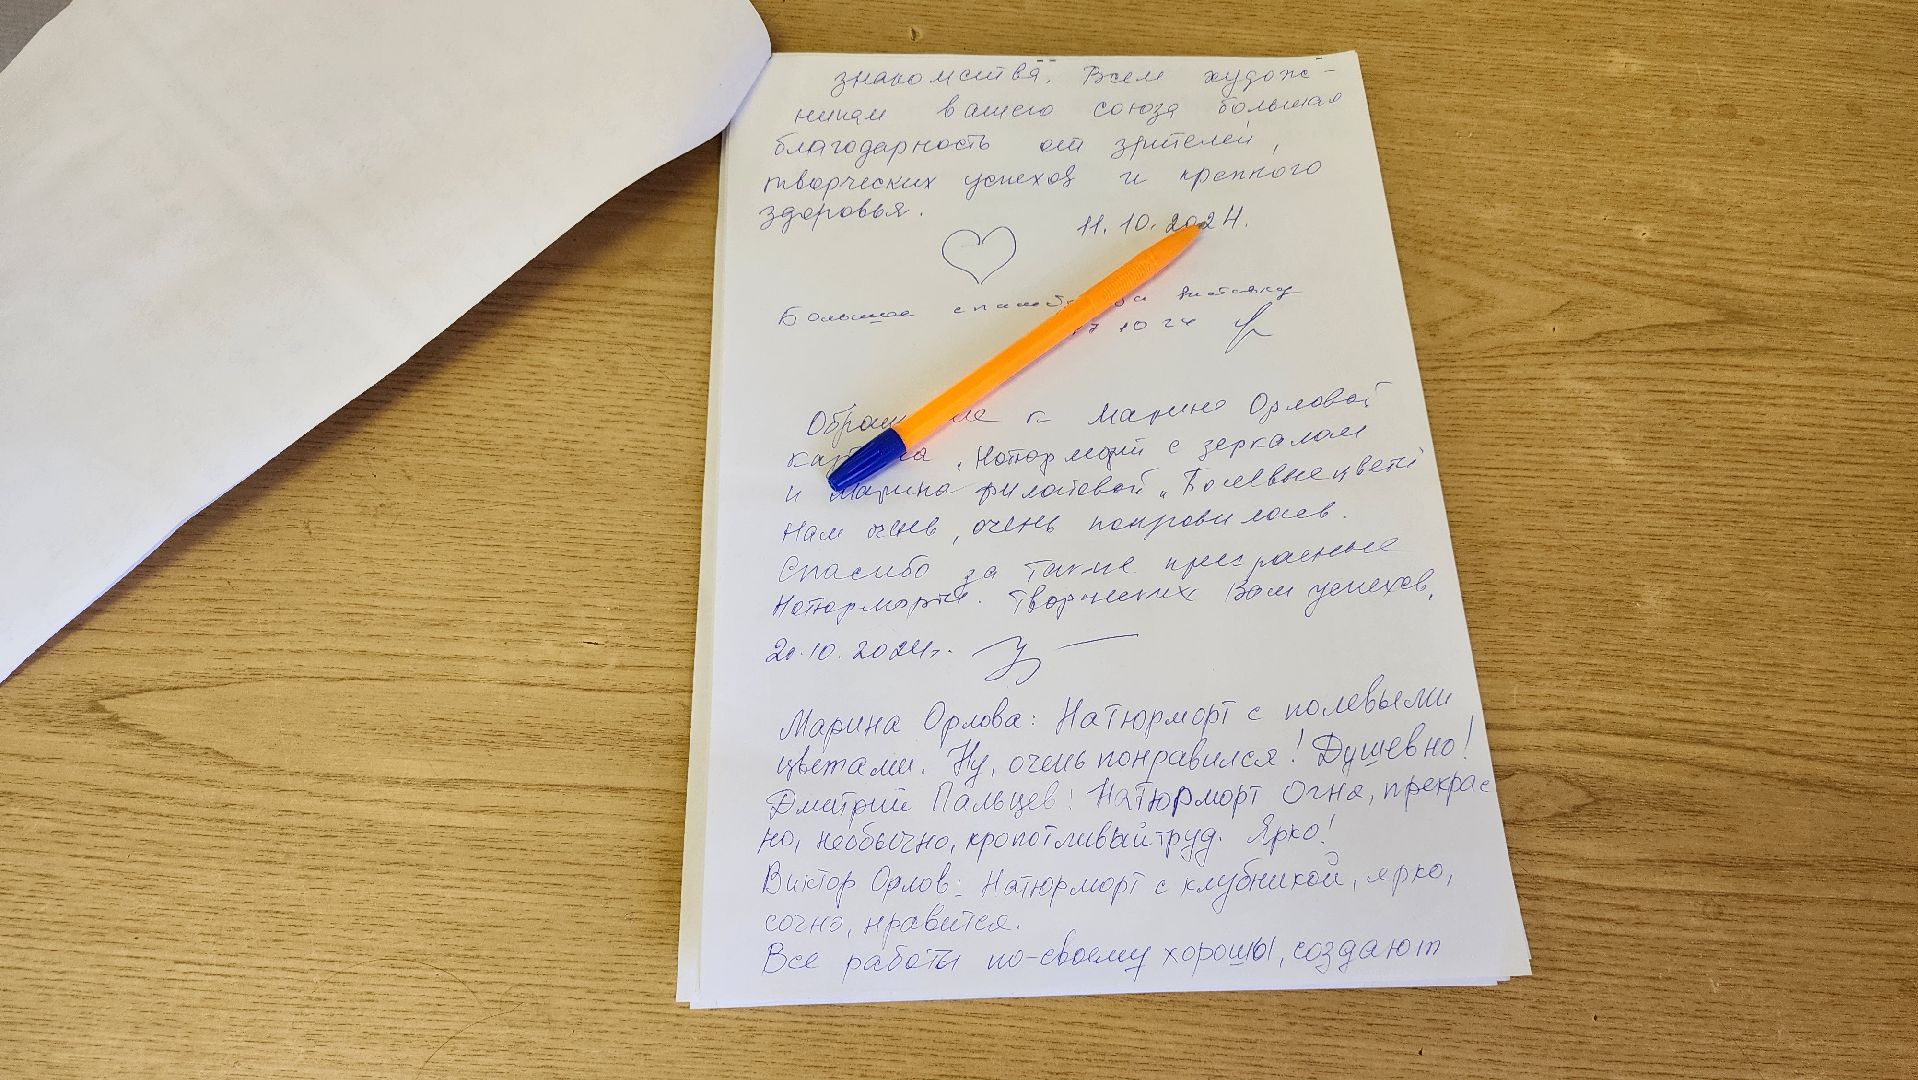 знакомства. Всем худож-
никам вашего союза большая
благодарность от зрителей,
творческих успехов и крепкого
здоровья.
11.10.2024.
Большое за выставку
10 24
к Марине Орловой
Натюрморт с зеркалом
и Марина Филатовой „Полевые цветы
нам очень, очень понравилась.
Спасибо за такие прекрасные
натюрморты. Творческих Вам успехов.
20.10.2024г.
Марина Орлова: Натюрморт с полевыми
цветами. Ну, очень понравился! Душевно!
Дмитрий Пальцев: Натюрморт Огня, прекрас
но, необычно, кропотливый труд. Ярко!
Виктор Орлов: Натюрморт с клубникой, ярко,
сочно, нравится.
Все работы по-своему хороши, создают